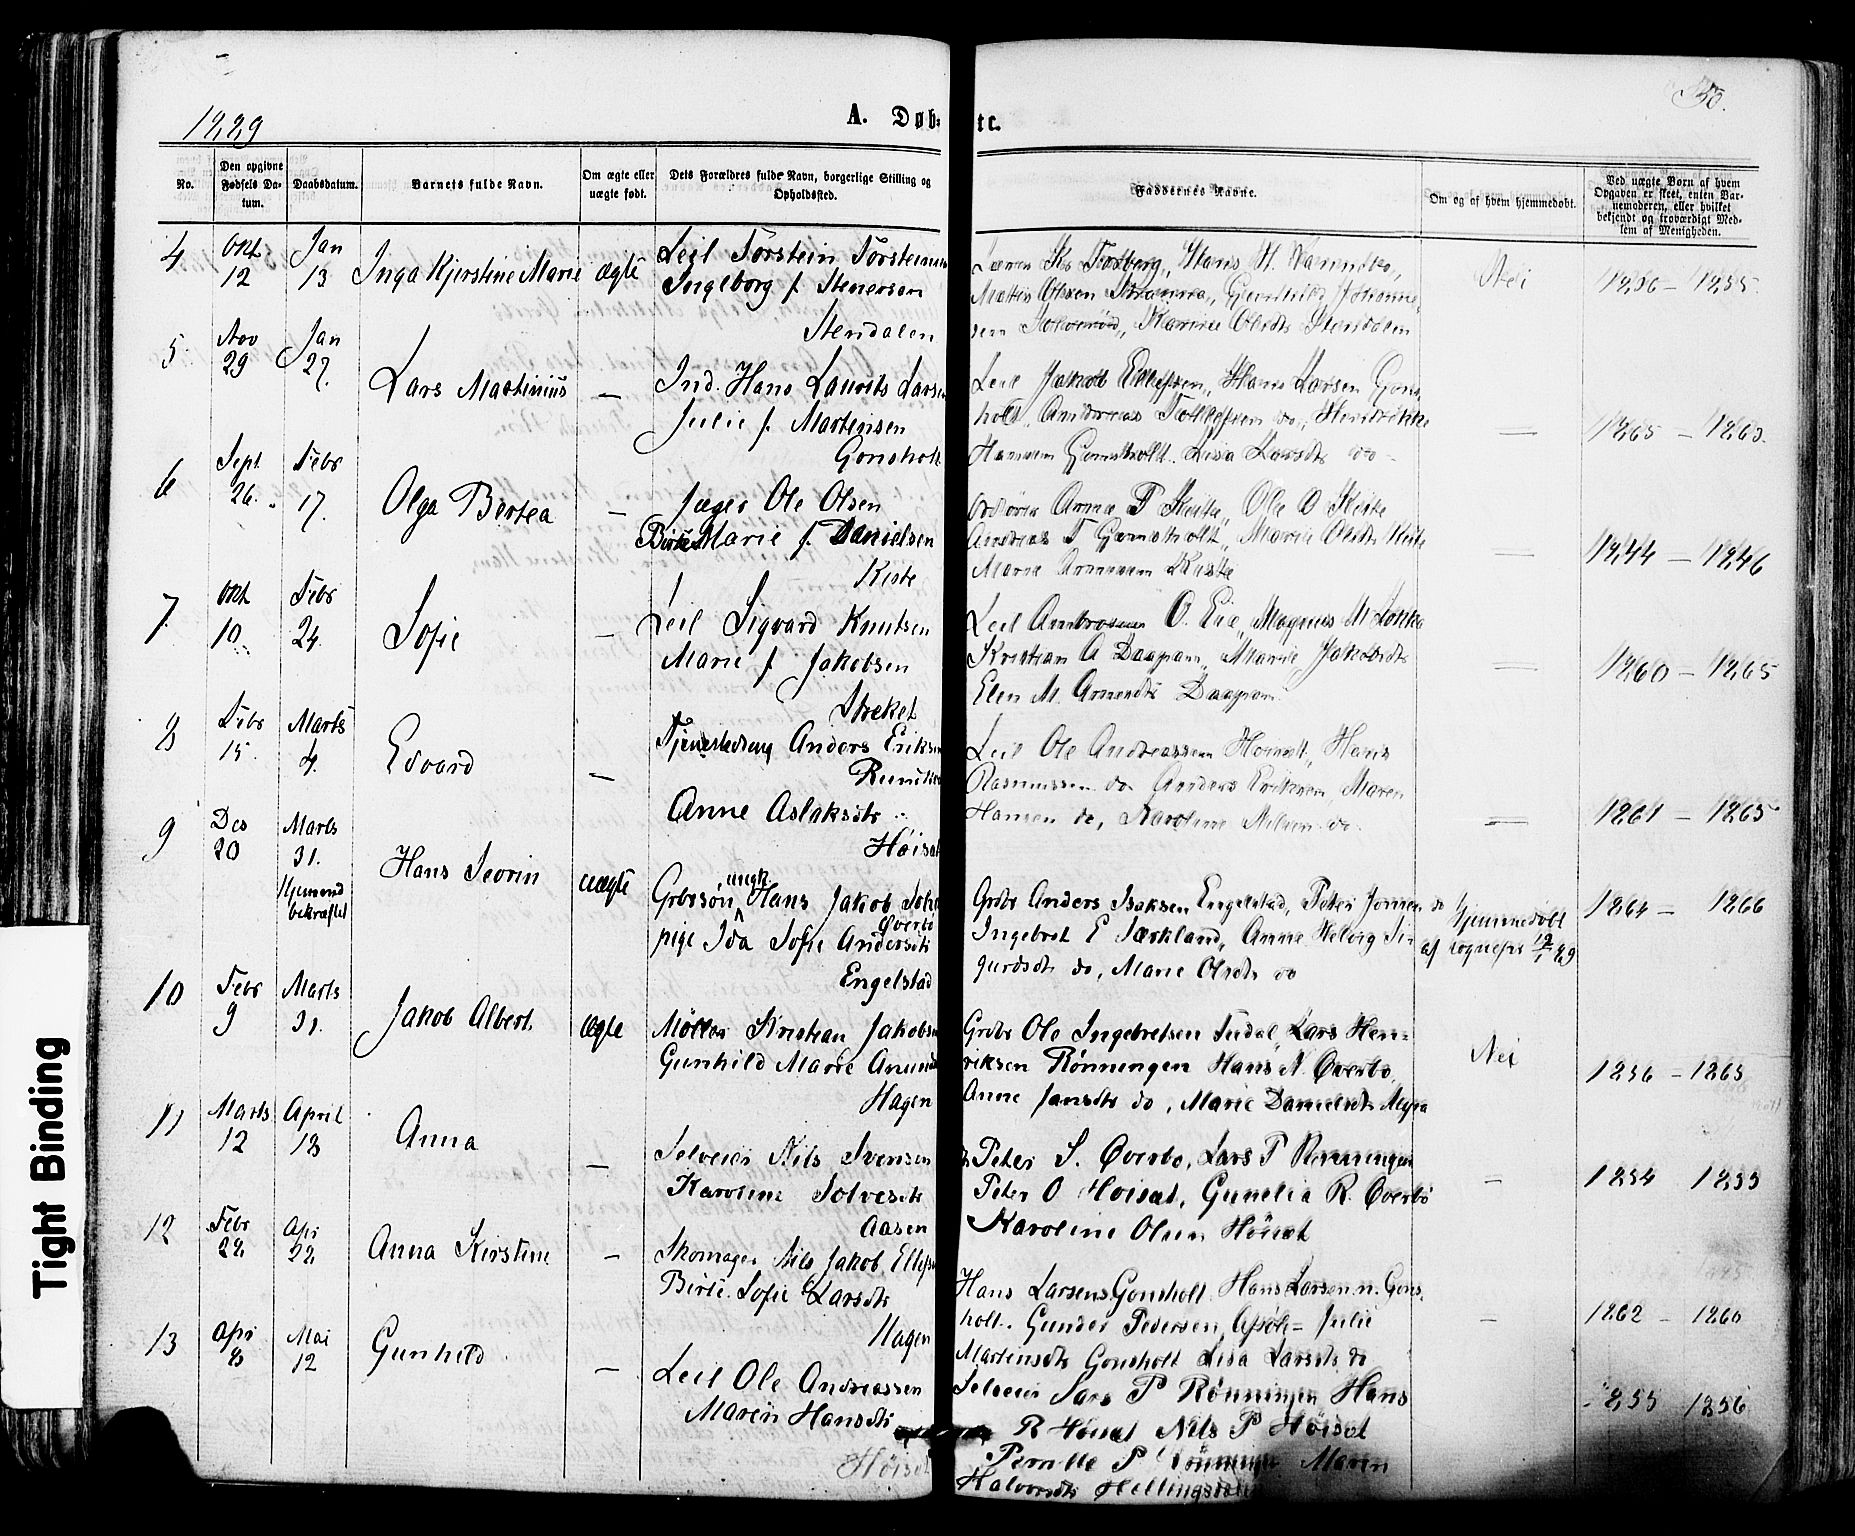 1889
A. Døb-
te.
No.
Den opgivne Fødsels Da-tum.
Daabsdatum.
Barnets fulde Navn.
Om ægte eller uægte født.
Dets Forældres fulde Navn, borgerlige Stilling og Opholdssted.
Faddernes Navne.
Om og af hvem hjemmedøbt.
Ved uægte Børn af hvem Opgaven er skeet, enten Bar-nemoderen, eller hvilket bekjendt og troværdigt Med-lem af Menigheden.
4
Okt 12
Jan 13
Inga Kjerstine Marie
ægte
Leil Torstein Torstensen
Ingeborg f. Stenersen
Stendalen
Søren Ks Fosberg, Hans H.
Mattis Olsen Gunhild Johanne
sen Marine Olsdt Stendalen
Nei
1856 - 1855
5
Nov 29
Jan 27.
Lars Martinius
—
Ind. Hans Laurits Larsen
Julie f. Martinsen
Gonsholt
Leil Jakob Ellefsen, Hans Larsen Gons
holt, Andreas Tollefsen do, Hendrikke
Hansen Gomsholt. Lisa Larsdt do -
—
1865 - 1863.
6
Sept 26.
Febr 17.
Olga Bertea
—
Jæger Ole Olsen
Birte Marie f. Danielsen
Kiste
Arne T Kiste, Ole O Kiste
Andreas T Gomsholt, Marie Olsdt Kiste
Marie Arnesen Kiste
—
1844 - 1846
7
Okt 10
Febr 24.
Sofie
—
Leil Sigvard Knutsen
Marie f. Jakobsen
Stokket
Leil Ambrosius O. Eie, Magnus M Lokke
Kristian A Daapan, Marie Jakobsdt
Elen M. Arnesdt Daapan
—
1860 - 1865
8
Febr 15
Marts 4.
Edvard
—
Tjenestedreng Anders Eriksen
Anne Aslaksdt
Høisæt
Leil Ole Andreassen Høisæt, Hans
Rasmussen do Anders Eriksen, Maren
Hansen do, Karoline Nilsen do.
—
1861 - 1865
9
Des 20
Marts 31.
bekræftet
Hans Severin
uægte
Grbrsøn ungk. Hans Jakob
Øverbø
pige Ida Sofie Andersdt
Engelstad
Grbr Anders Isaksen Engelstad, Peter Jonsen do
Ingebret E Særkland, Anne Helvig Si-
gurdsdt do, Marie Olsdt do
Hjemmedøbt
af Sognepr 12/1 89
1864 - 1866
10
Febr 9
Marts 31.
Jakob Albert
ægte
Møller Kristian Jakobsen
Gunhild Marie
Hagen
Grbr Ole Ingebretsen Tudal, Lars Hen-
riksen Rønningen Hans N. Øverbø,
Anne Jansdt do, Marie Danielsdt
Nei
1856 - 1865
11
Marts 12
April 13
Anna
—
Selveier Nils Svensen
Karoline Solvesdt
Aasen
Peter S. Øverbø, Lars P Rønningen
Peter O Høisæt, Gunelia R. Øverbø
Karoline Olsen Høisæt
-
1854 1855
12
Febr 28
Apr 22
Anna Kirstine
—
Skomager Nils Jakob Ellefsen
Birte Sofie Larsdt
Hagen
Hans Larsen S. Gomsholt Hans Larsen n. Gons-
holt. Gunder Pedersen Julie
Martinsdt Gonsholt Lisa Larsdt do
-
1862 - 1860
13
Apr 8
Mai 12
Gunhild
—
Leil Ole Andreassen
Maren Hansdt
Høisæt
Selveier Lars P Rønningen Hans
R Høisæt Nils P Høisæt
Pernille P Rønningen Maren
Halvorsdt Hellingsdalen
1855 1856
Tight Binding